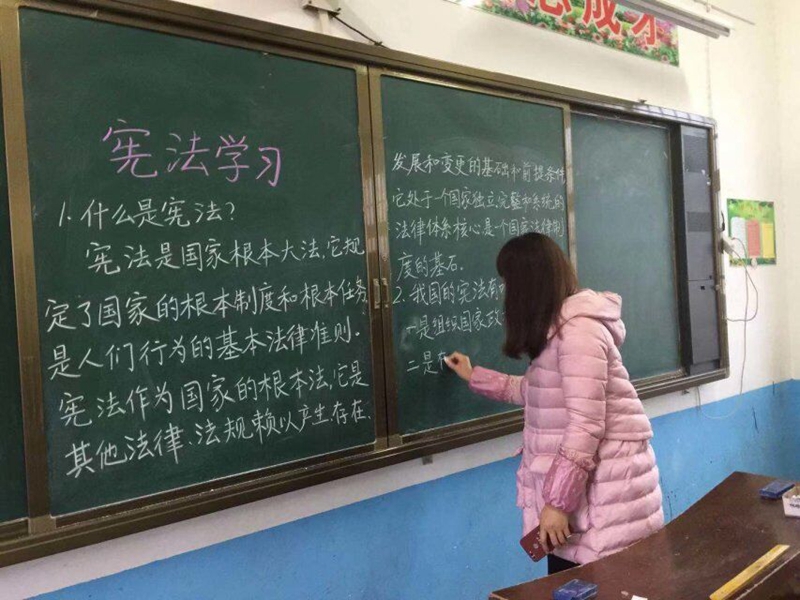 志成才
宪法学习
1.什么是宪法?
宪法是国家根本大法,它规
定了国家的根本制度和根本任务
是人们行为的基本法律准则.
宪法作为国家的根本法,它是
其他法律、法规赖以产生、存在、
发展和变更的基础和前提条件
它处于一个国家独立、完整和系统的
法律体系核心是一个国家法律制
度的基石.
2.我国的宪法有
一是组织国家政
二是